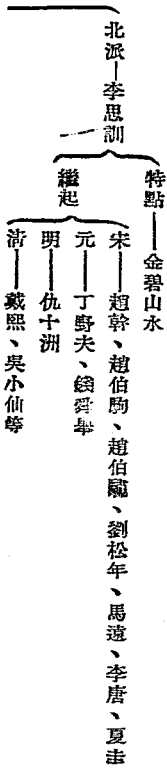 北派—李思訓
特點——金碧山水
繼起
宋——趙幹、趙伯駒、趙伯驌、劉松年、馬遠、李唐、夏圭
元——丁野夫、錢舜舉
明——仇十洲
清——戴熙、吳小仙等